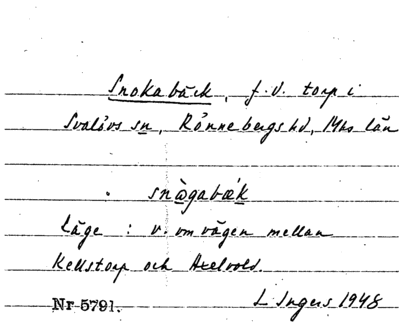 Snokabäck, f.d. torp i
Svalövs sn, Rönnebergs hd, Mhs län
snògabæ̀k
Läge : v. om vägen mellan
Kellstorp och Axelvold.
Nr 5791. L Ingers 1948